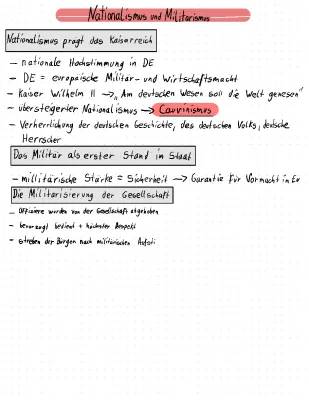 Nationalismus und Militarismus
Nationalismus prägt das Kaiserreich
- nationale Hochstimmung in DE
- DE = europäische Militär- und Wirtschaftsmacht
- Kaiser Wilhelm II → „Am deutschen Wesen soll die Welt genesen"
- übersteigerter Nationalismus → Cauvinismus
- Verherrlichung der deutschen Geschichte, des deutschen Volks, deutsche
Herrscher
Das Militär als erster Stand im Staat
- millitärische Stärke = Sicherheit → Garantie für Vormacht in Eu
Die Militarisierung der Gesellschaft
- Offiziere wurden von der Gesellschaft abgehoben
- bevorzugt bedient + höchster Respekt
- streben der Bürgen nach militärischen